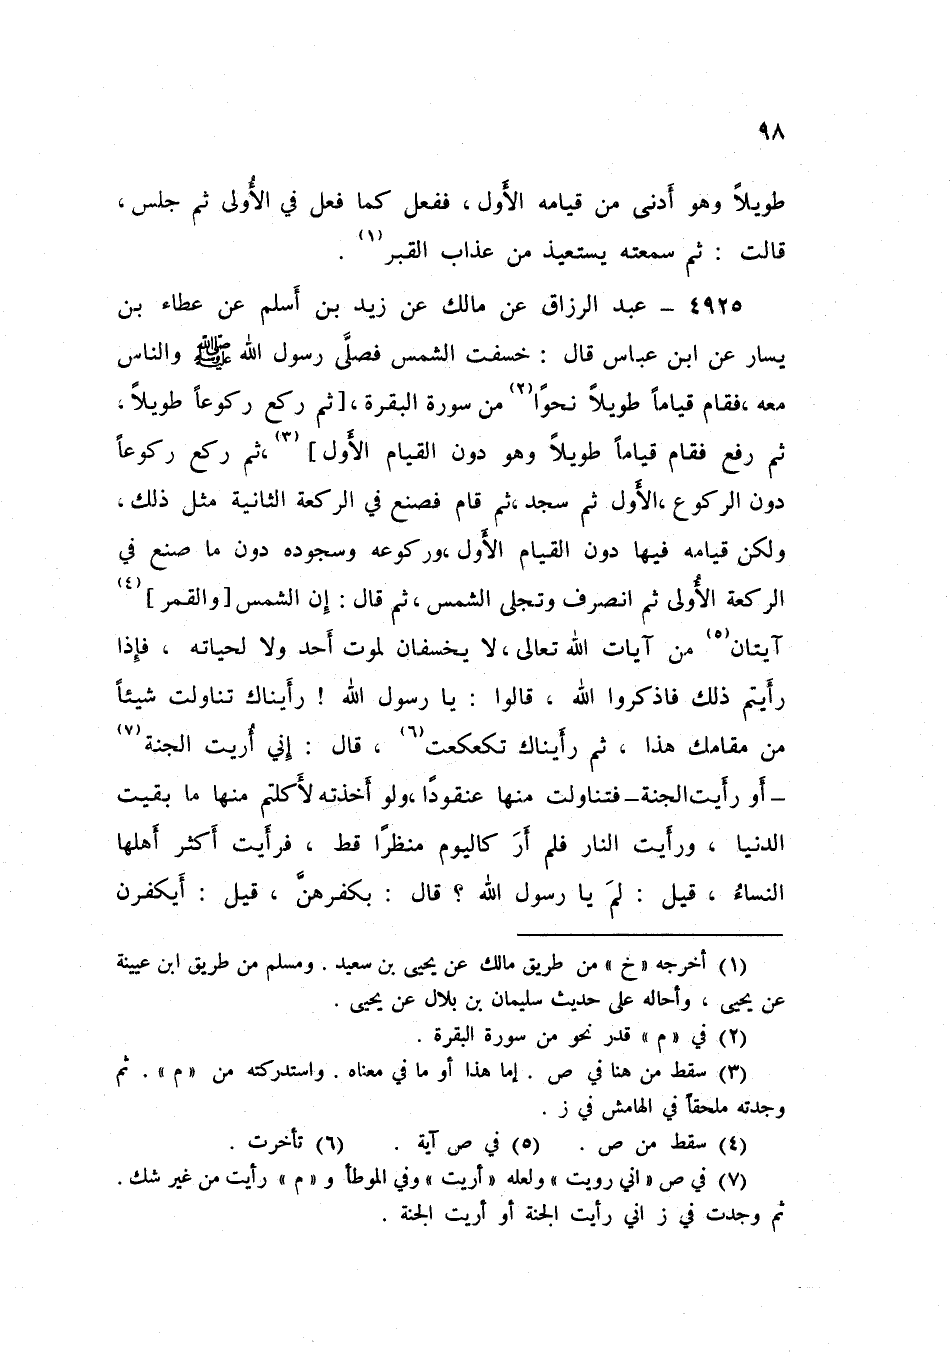 ٩٨
طويلاً وهو أَدنى من قيامه الأَول ، ففعل كما فعل في الأُولى ثم جلس ،
قالت : ثم سمعته يستعيذ من عذاب القبر(١) .
٤٩٢٥ – عبد الرزاق عن مالك عن زيد بن أَسلم عن عطاء بن
يسار عن ابن عباس قال : خسفت الشمس فصلَّى رسول الله ﷺ والناس
معه ،فقام قياماً طويلاً نحوًا(٢) من سورة البقرة ،[ثم ركع ركوعاً طويلاً ،
ثم رفع فقام قياماً طويلاً وهو دون القيام الأَول ](٣) ،ثم ركع ركوعاً
دون الركوع ،الأَول ثم سجد ،ثم قام فصنع في الركعة الثانية مثل ذلك ،
ولكن قيامه فيها دون القيام الأَول ،وركوعه وسجوده دون ما صنع في
الركعة الأُولى ثم انصرف وتجلى الشمس ، ثم قال : إن الشمس [والقمر ](٤)
آيتان(٥) من آيات الله تعالى ،لا يخسفان لموت أَحد ولا لحياته ، فإذا
رأَيتم ذلك فاذكروا الله ، قالوا : يا رسول الله ! رأَيناك تناولت شيئاً
من مقامك هذا ، ثم رأَيناك تكعكعت(٦) ، قال : إني أُريت الجنة(٧)
– أَو رأَيت الجنة – فتناولت منها عنقودًا ،ولو أَخذته لأَكلتم منها ما بقيت
الدنيا ، ورأَيت النار فلم أَرَ كاليوم منظرًا قط ، فرأَيت أَكثر أَهلها
النساءُ ، قيل : لمَ يا رسول الله ؟ قال : بكفرهنَّ ، قيل : أَيكفرن
(١) أخرجه «خ» من طريق مالك عن يحيى بن سعيد . ومسلم من طريق ابن عيينة
عن يحيى ، وأحاله على حديث سليمان بن بلال عن يحيى .
(٢) في «م» قدر نحو من سورة البقرة .
(٣) سقط من هنا في ص . إما هذا أو ما في معناه . واستدركته من «م» . ثم
وجدته ملحقاً في الهامش في ز .
(٤) سقط من ص . (٥) في ص آية . (٦) تأخرت .
(٧) في ص «اني رويت» ولعله «أريت» وفي الموطأ و «م» رأيت من غير شك .
ثم وجدت في ز اني رأيت الجنة أو أريت الجنة .